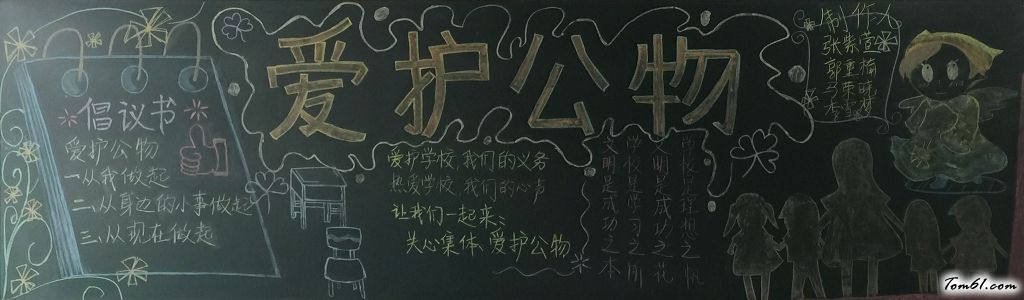 爱护公物
倡议书
爱护公物
一、从我做起
二、从身边的小事做起
三、从现在做起
爱护学校,我们的义务
热爱学校,我们的心声
让我们一起来:
关心集体、爱护公物
学校是理想之帆
文明是成功之花
学校是学习之所
文明是成功之本
制作人
Tom61.com